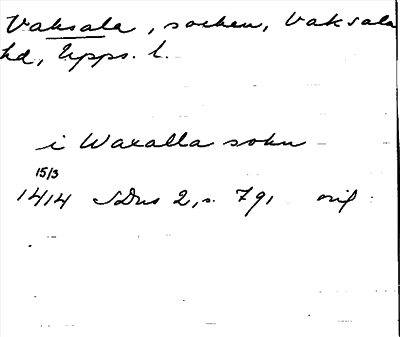 Vaksala, socken, Vaksala
hd, Upps. l.
i Waxalla sokn
15/3
1414 SDns 2, s. 791 orig.